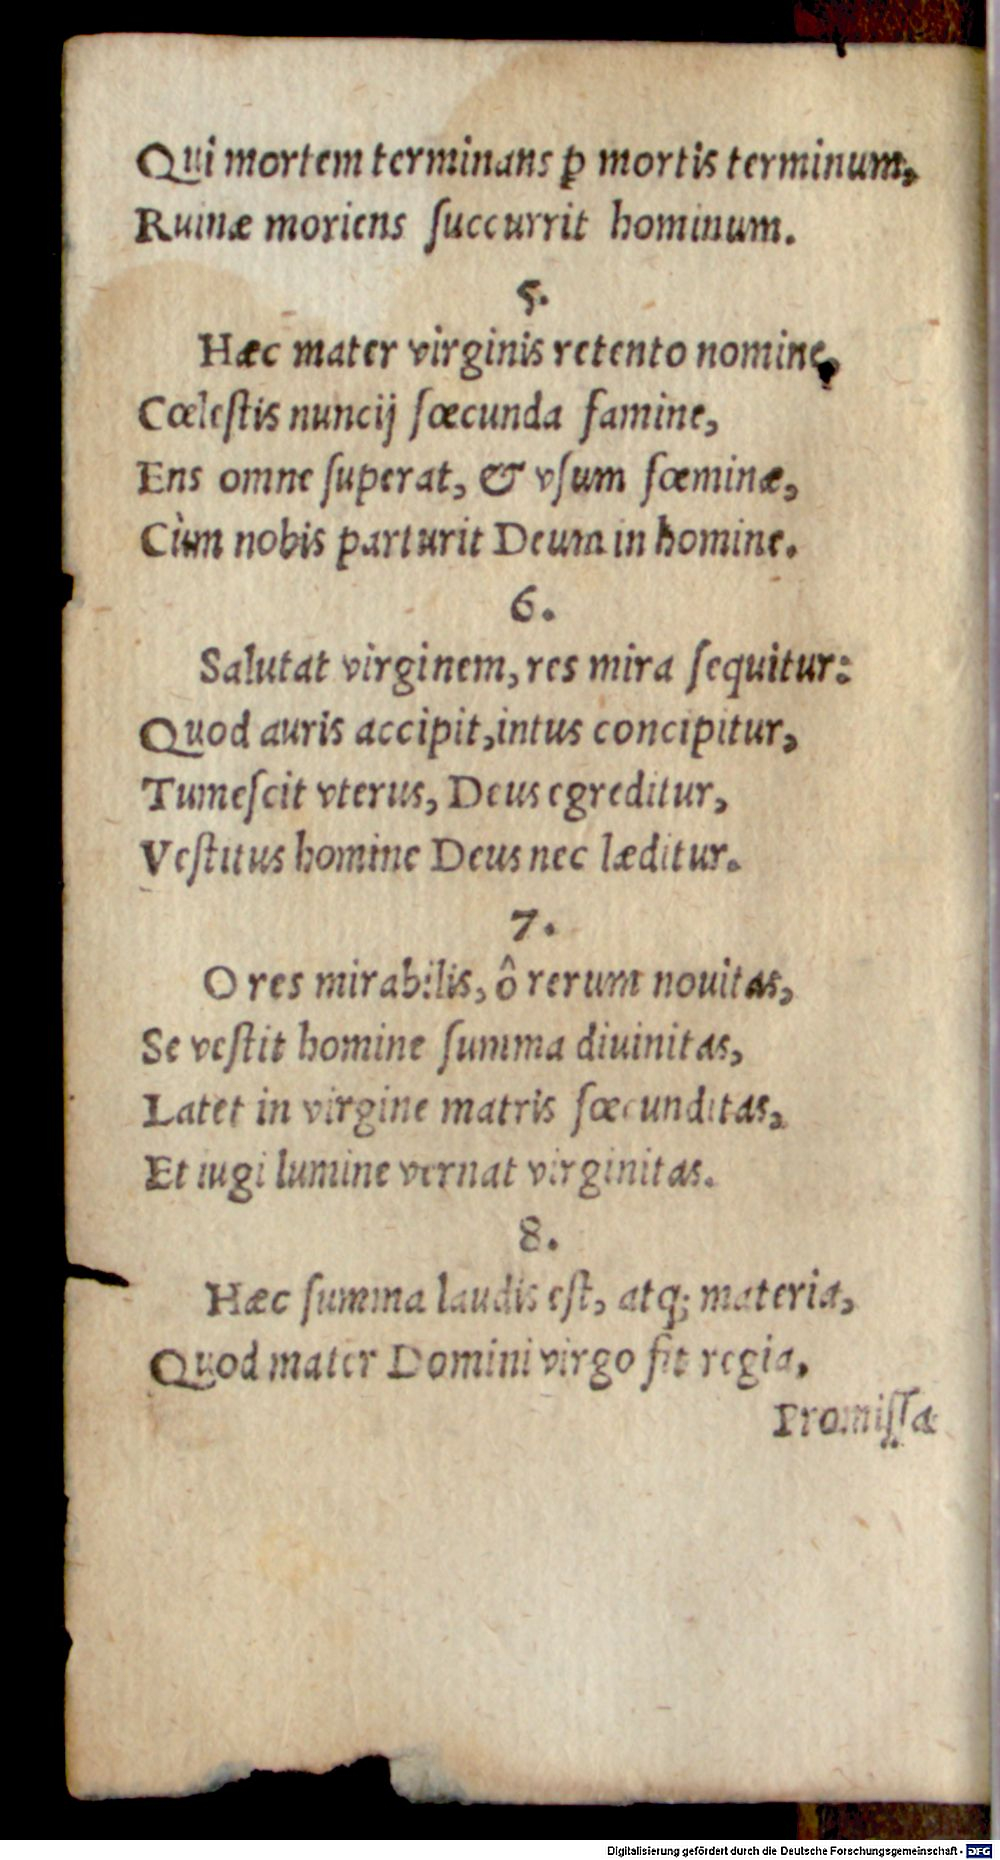 Qui mortem terminans ꝑ mortis terminum,
Ruinæ moriens ſuccurrit hominum.
5.
Hæc mater virginis retento nomine,
Cœleſtis nuncij fœcunda famine,
Ens omne ſuperat, & vſum fœminæ,
Cùm nobis parturit Deum in homine.
6.
Salutat virginem, res mira ſequitur:
Quod auris accipit, intus concipitur,
Tumeſcit vterus, Deus egreditur,
Veſtitus homine Deus nec læditur.
7.
O res mirabilis, ô rerum nouitas,
Se veſtit homine ſumma diuinitas,
Latet in virgine matris fœcunditas,
Et iugi lumine vernat virginitas.
8.
Hæc ſumma laudis eſt, atq; materia,
Quod mater Domini virgo fit regia,
Promiſſa
Digitalisierung gefördert durch die Deutsche Forschungsgemeinschaft - DFG